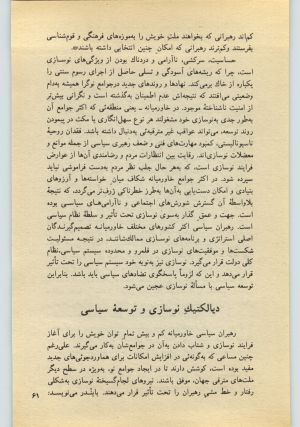 کم‌اند رهبرانی که بخواهند ملت خویش را به‌موزه‌های فرهنگی و قوم‌شناسی
بفرستند و کم‌ترند رهبرانی که امکان چنین انتخابی داشته باشند».
حساسیت، سرکشی، ناآرامی و دردناک بودن از ویژگی‌های نوسازی
است، چرا که ریشه‌های آسودگی و تسلی حاصل از اجرای رسوم سنتی را
یکباره از خاک برمی‌کند. نهادها و روندهای جدید در جوامع نوگرا همیشه به‌دام
وضعیتی می‌افتند که نتیجه‌اش عدم اطمینان به‌گذشته است و نگرانی بیش‌تر
از امنیت ناشناختهٔ موجود. در خاورمیانه ــ یعنی منطقه‌ئی که اکثر جوامع آن
به‌طور جدی به‌نوسازی خود مشغولند هر نوع سهل‌انگاری یا مکث در پیمودن
روند توسعه، می‌تواند عواقب غیر مترقبه‌ئی به‌دنبال داشته باشد. فقدان روحیهٔ
ناسیونالیستی، کمبود مهارت‌های فنی و ضعف رهبری سیاسی از جمله موانع و
معضلات نوسازی‌اند. رقابت بین انتظارات مردم و رضامندی آن‌ها از عوارض
فرایند نوسازی است، که به‌هر حال جلب نظر مردم به‌دست فراموشی نباید
سپرده شود. در اکثر جوامع خاورمیانه شکاف میان خواسته‌ها و آرزوهای
بنیادی و امکان دست‌یابی به‌آن‌ها به‌طرز خطرناکی ژرف‌تر می‌گردد، که نتیجهٔ
بلاواسطهٔ آن گسترش شورش‌های اجتماعی و ناآرامی‌های سیاسی بوده
است. جهت و عمق گذار به‌سوی نوسازی تحت تأثیر و سلطهٔ نظام سیاسی
است. رهبران سیاسی اکثر کشورهای مختلف خاورمیانه تصمیم‌گیرندگان
اصلی استراتژی و برنامه‌های نوسازی ممالکشانند. در نتیجه مسئولیت
شکست‌ها و موفقیت‌های نوسازی در قلمرو و محدودهٔ سیستم سیاسی، نظام
کلی دولت قرار می‌گیرد. نوسازی نیز به‌نوبه خود سیستم سیاسی را تحت تأثیر
قرار می‌دهد و این که لزوماً پاسخگوی تضادهای سیاسی باید باشد. بنابراین
توسعه سیاسی با مسألهٔ نوسازی عجین می‌شود.
دیالکتیک نوسازی و توسعهٔ سیاسی
رهبران سیاسی خاورمیانه کم و بیش تمام توان خویش را برای آغاز
فرایند نوسازی و شتاب دادن به‌آن در جوامع‌شان به‌کار می‌گیرند. علی‌رغم
چنین مساعی که به‌گونه‌ئی در افزایش امکانات برای هماوردجوئی‌های جدید
مفید بوده است، کوشش دارند تا در ایجاد جوامع نو، به‌ویژه در سطح دیگر
ملت‌های مترقی جهان، موفق باشند. نیروهای لجام‌گسیختهٔ نوسازی به‌شکلی
رفتار و خط مشی رهبران را تحت تأثیر قرار می‌دهند. بایندر می‌نویسد:
۶۱